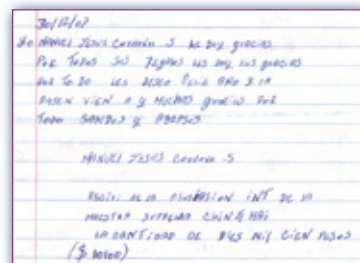 30/12/07
Yo MANUEL JESUS CARDENA S LE DOY GRACIAS
POR TODOS SU REGALOS LES DOY LAS GRACIAS
POR TODO LES DESEO FELIZ AÑO Y LA
PASEN VIEN A Y MUCHAS GRACIAS POR
TODO SALUDOS Y ABRASOS
MANUEL JESUS CARDENA S
RECIVI DE LA ASOSASION INT DE LA
MAESTRA SUPREMA CHING HAI
LA CANTIDAD DE DIES MIL CIEN PESOS
($ 10100)